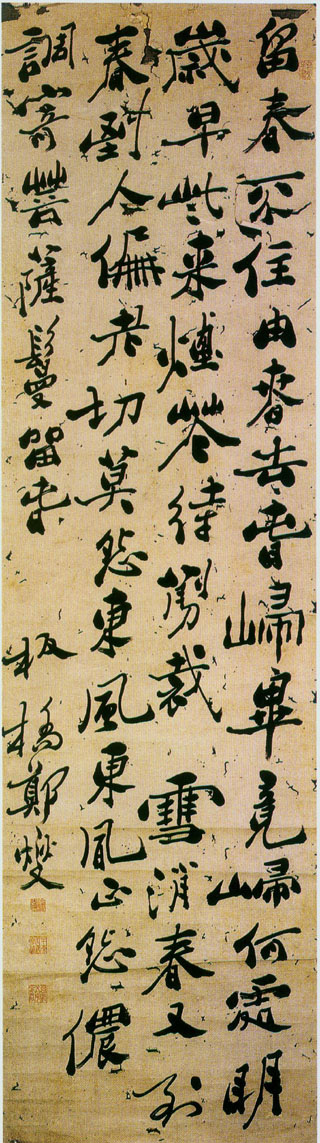 留春不住由春去春歸畢竟歸何處明
歲早些来煙花待剪裁 雪消春又到
春到人偏老切莫怨東風東風正怨儂
調寄菩薩鬘留春 板橋鄭燮